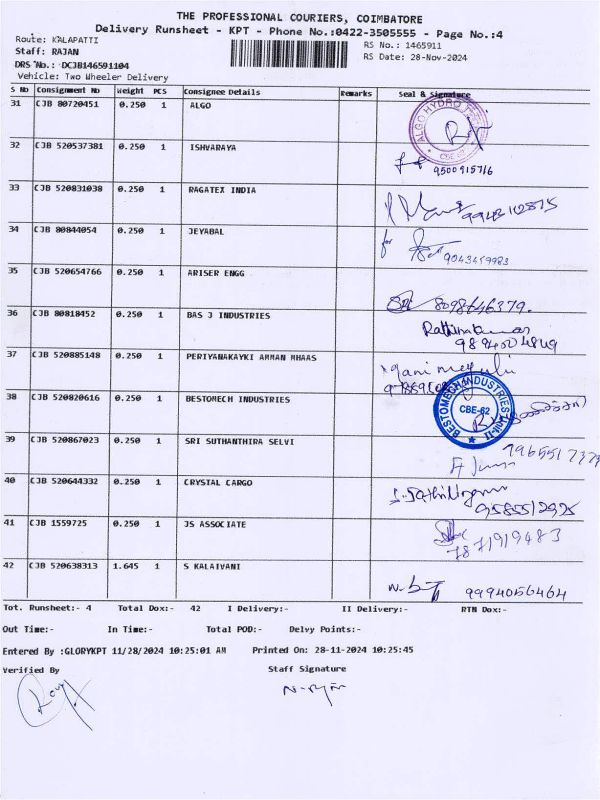 THE PROFESSIONAL COURIERS, COIMBATORE
Delivery Runsheet - KPT - Phone No.:0422-3505555 - Page No.:4
Route: KALAPATTI
RS No.: 1465911
Staff: RAJAN
RS Date: 28-Nov-2024
DRS No.: DCJB146591104
Vehicle: Two Wheeler Delivery
S No Consignment No Weight PCS Consignee Details Remarks Seal & Signature
31 CJB 80720451 0.250 1 ALGO ALGO HYDRO CBE-62
32 CJB 520537381 0.250 1 ISHVARAYA 9500915716
33 CJB 520831038 0.250 1 RAGATEX INDIA
34 CJB 80844054 0.250 1 JEYABAL for 9043459983
35 CJB 520654766 0.250 1 ARISER ENGG 8098646379.
36 CJB 80818452 0.250 1 BAS J INDUSTRIES Rathinakumar
9894004849
37 CJB 520885148 0.250 1 PERIYANAKAYKI AMMAN MHAAS
38 CJB 520820616 0.250 1 BESTOMECH INDUSTRIES BESTOMECH INDUSTRIES CBE-62
39 CJB 520867023 0.250 1 SRI SUTHANTHIRA SELVI
40 CJB 520644332 0.250 1 CRYSTAL CARGO 9585512975
41 CJB 1559725 0.250 1 JS ASSOCIATE 7871919483
42 CJB 520638313 1.645 1 S KALAIVANI 9994056464
Tot. Runsheet:- 4 Total Dox:- 42 I Delivery:- II Delivery:- RTN Dox:-
Out Time:- In Time:- Total POD:- Delvy Points:-
Entered By :GLORYKPT 11/28/2024 10:25:01 AM Printed On: 28-11-2024 10:25:45
Verified By Staff Signature